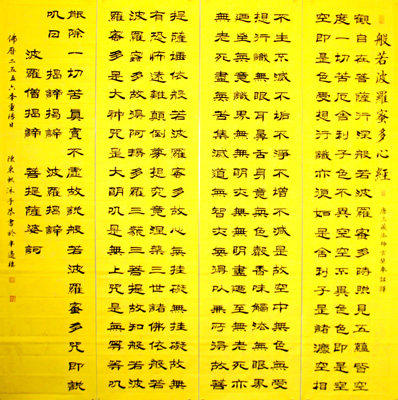 般若波羅蜜多心經 唐三藏法師玄奘奉詔譯
觀自在菩薩行深般若波羅蜜多時照見五蘊皆空
度一切苦厄舍利子色不異空空不異色色即是空
空即是色受想行識亦復如是舍利子是諸灋空相
不生不滅不垢不淨不增不減是故空中無色無受
想行識無眼耳鼻舌身意無色聲香味觸法無眼界
乃至無意識界無無明亦無無明盡乃至無老死亦
無老死盡無苦集滅道無智亦無得以無所得故菩
提薩埵依般若波羅蜜多故心無挂礙無挂礙故無
有恐怖遠離顛倒夢想究竟涅槃三世諸佛依般若
波羅蜜多故得阿耨多羅三藐三菩提故知般若波
羅蜜多是大神咒是大明咒是無上咒是無等等咒
能除一切苦真實不虛故說般若波羅蜜多咒即說
咒曰 揭諦揭諦 波羅揭諦
波羅僧揭諦 菩提薩婆訶
佛曆二五五六年重陽日 陳東帆沐手恭書於半邊樓